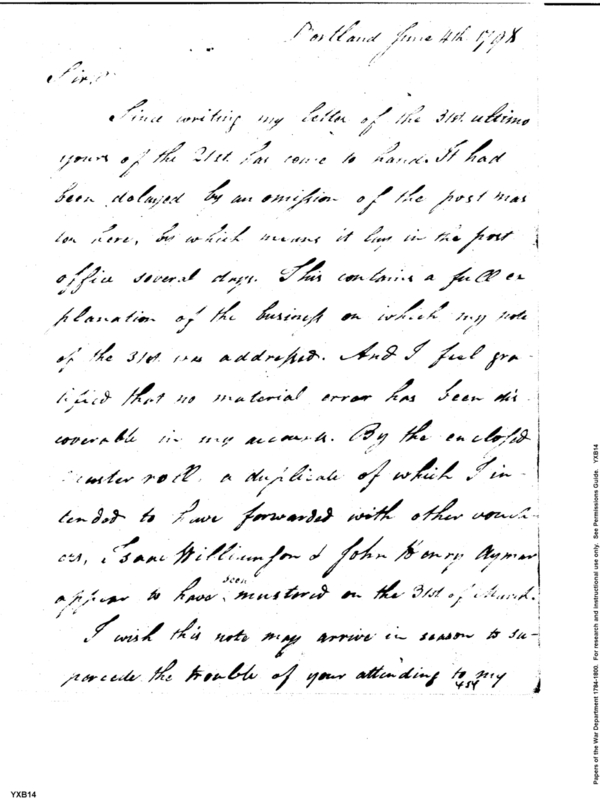 Portland June 4th 1798
Sir,
Since writing my letter of the 31st. ultimo
yours of the 21st. has come to hand. It had
been delayed by an omission of the post mas
ter here, by which means it lay in the post
office several days. This contains a full ex
planation of the business on which my note
of the 31st was addressed. And I feel gra-
tified that no material error has been dis
coverable in my accounts. By the enclosed
muster roll, a duplicate of which I in-
tended to have forwarded with other vouch
ers, Isaac Williamson & John Henry Aymar
appear to have been mustered on the 31st of March.
I wish this note may arrive in season to su-
percede the trouble of your attending to my
454
YXB14
Papers of the War Department 1784-1800. For research and instructional use only. See Permissions Guide. YXB14